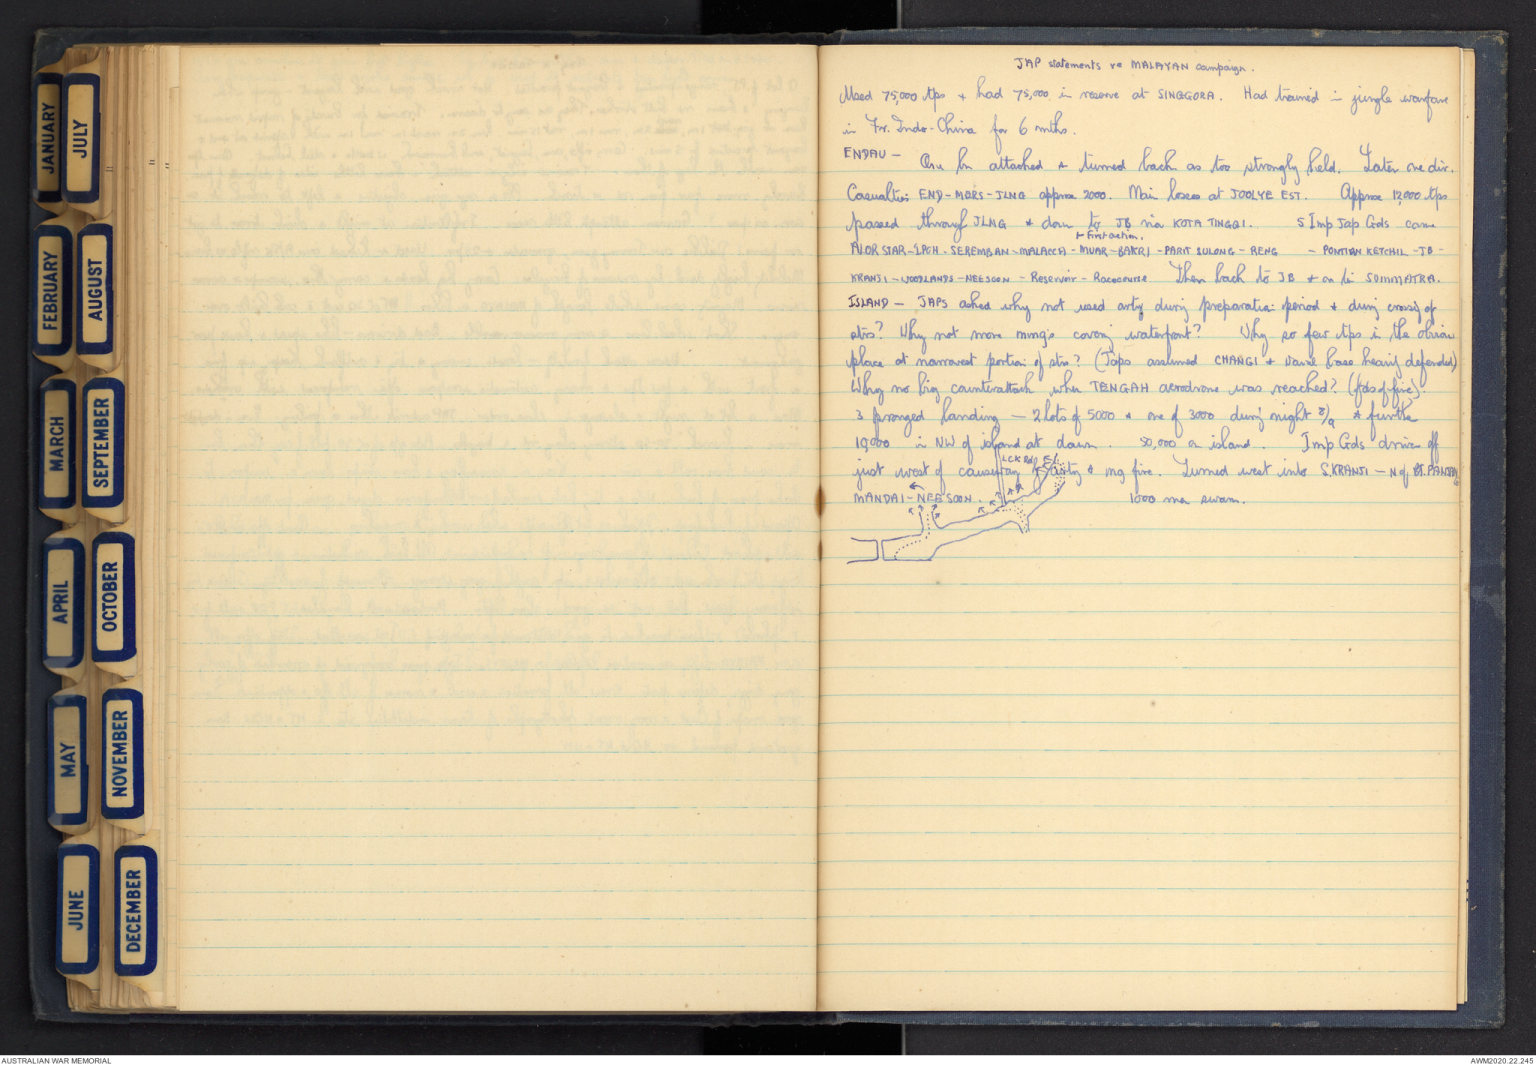 JANUARY
JULY
FEBRUARY
AUGUST
MARCH
SEPTEMBER
APRIL
OCTOBER
MAY
NOVEMBER
JUNE
DECEMBER
JAP statements re MALAYAN campaign.
Used 75,000 tps + had 75,000 in reserve at SINGGORA. Had trained in jungle warfare
in Fr. Indo-China for 6 mths.
ENDAU - One bn attacked + turned back as too strongly held. Later one div.
Casualties END-MERS-JLNG approx 2000. Main losses at JOOLYE EST. Approx 12,000 tps
passed through JLNG + down to JB via KOTA TINGGI. 5 Imp Jap Gds came
First action.
ALOR STAR-IPOH-SEREMBAN-MALACCA-MUAR-BAKRI-PARIT SULONG-RENG - PONTIAN KETCHIL-JB-
KRANJI-WOODLANDS-NEESOON-Reservoir-Racecourse Then back to JB + on to SUMMATRA.
ISLAND - JAPS asked why not used arty during preparation period + during crossing of
strs? Why not more mmgs covering waterfront? Why so few tps in the obvious
place at narrowest portion of strs? (Japs assumed CHANGI + naval base heavily defended)
Why no big counterattack when TENGAH aerodrome was reached? (fds of fire).
3 pronged landing - 2 lots of 5000 + one of 3000 during night 8/9 + further
10,000 in NW of island at dawn. 50,000 on island. Imp Gds driven off
just west of causeway by arty & mg fire. Turned west into S.KRANJI - N of BT. PANJANG
LCK Rd
MANDAI-NEESOON. 1000 men swam.
AUSTRALIAN WAR MEMORIAL
AWM2020.22.245